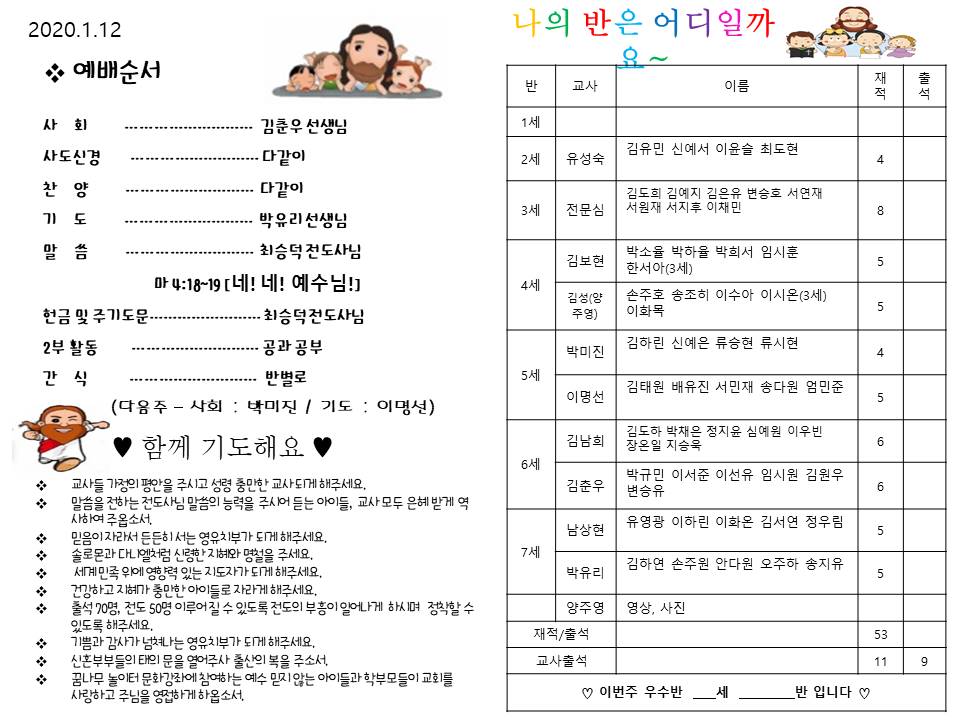 2020.1.12
❖ 예배순서
사 회 -------------------------- 김춘우선생님
사도신경 -------------------------- 다같이
찬 양 -------------------------- 다같이
기 도 -------------------------- 박유리선생님
말 씀 -------------------------- 최승덕전도사님
마 4:18~19 [네! 네! 예수님!]
헌금 및 주기도문------------------------ 최승덕전도사님
2부 활동 -------------------------- 공과 공부
간 식 -------------------------- 반별로
(다음주 – 사회 : 박미진 / 기도 : 이명선)
♥ 함께 기도해요 ♥
❖ 교사들 가정의 평안을 주시고 성령 충만한 교사되게 해주세요.
❖ 말씀을 전하는 전도사님 말씀의 능력을 주시어 듣는 아이들, 교사 모두 은혜 받게 역
사하여 주옵소서.
❖ 믿음이 자라서 든든히 서는 영유치부가 되게 해주세요.
❖ 솔로몬과 다니엘처럼 신령한 지혜와 명철을 주세요.
❖ 세계 민족 위에 영향력 있는 지도자가 되게 해주세요.
❖ 건강하고 지혜가 충만한 아이들로 자라게 해주세요.
❖ 출석 70명, 전도 50명 이루어 질 수 있도록 전도의 부흥이 일어나게 하시며 정착할 수
있도록 해주세요.
❖ 기쁨과 감사가 넘쳐나는 영유치부가 되게 해주세요.
❖ 신혼부부들의 태의 문을 열어주사 출산의 복을 주소서.
❖ 꿈나무 놀이터 문화강좌에 참여하는 예수 믿지 않는 아이들과 학부모들이 교회를
사랑하고 주님을 영접하게 하옵소서.
나의 반은 어디일까
요~
반 교사 이름 재적 출석
1세
2세 유성숙 김유민 신예서 이윤슬 최도현 4
3세 전문심 김도희 김예지 김은유 변승호 서연재
서원재 서지후 이채민 8
4세 김보현 박소율 박하율 박희서 임시훈
한서아(3세) 5
김성(양주영) 손주호 송조히 이수아 이시온(3세)
이화목 5
5세 박미진 김하린 신예은 류승현 류시현 4
이명선 김태원 배유진 서민재 송다원 엄민준 5
6세 김남희 김도하 박채은 정지윤 심예원 이우빈
장온일 지승욱 6
김춘우 박규민 이서준 이선유 임시원 김원우
변승유 6
7세 남상현 유영광 이하린 이화온 김서연 정우림 5
박유리 김하연 손주원 안다원 오주하 송지유 5
양주영 영상, 사진
재적/출석 53
교사출석 11 9
♡ 이번주 우수반 ___세 ________반 입니다 ♡